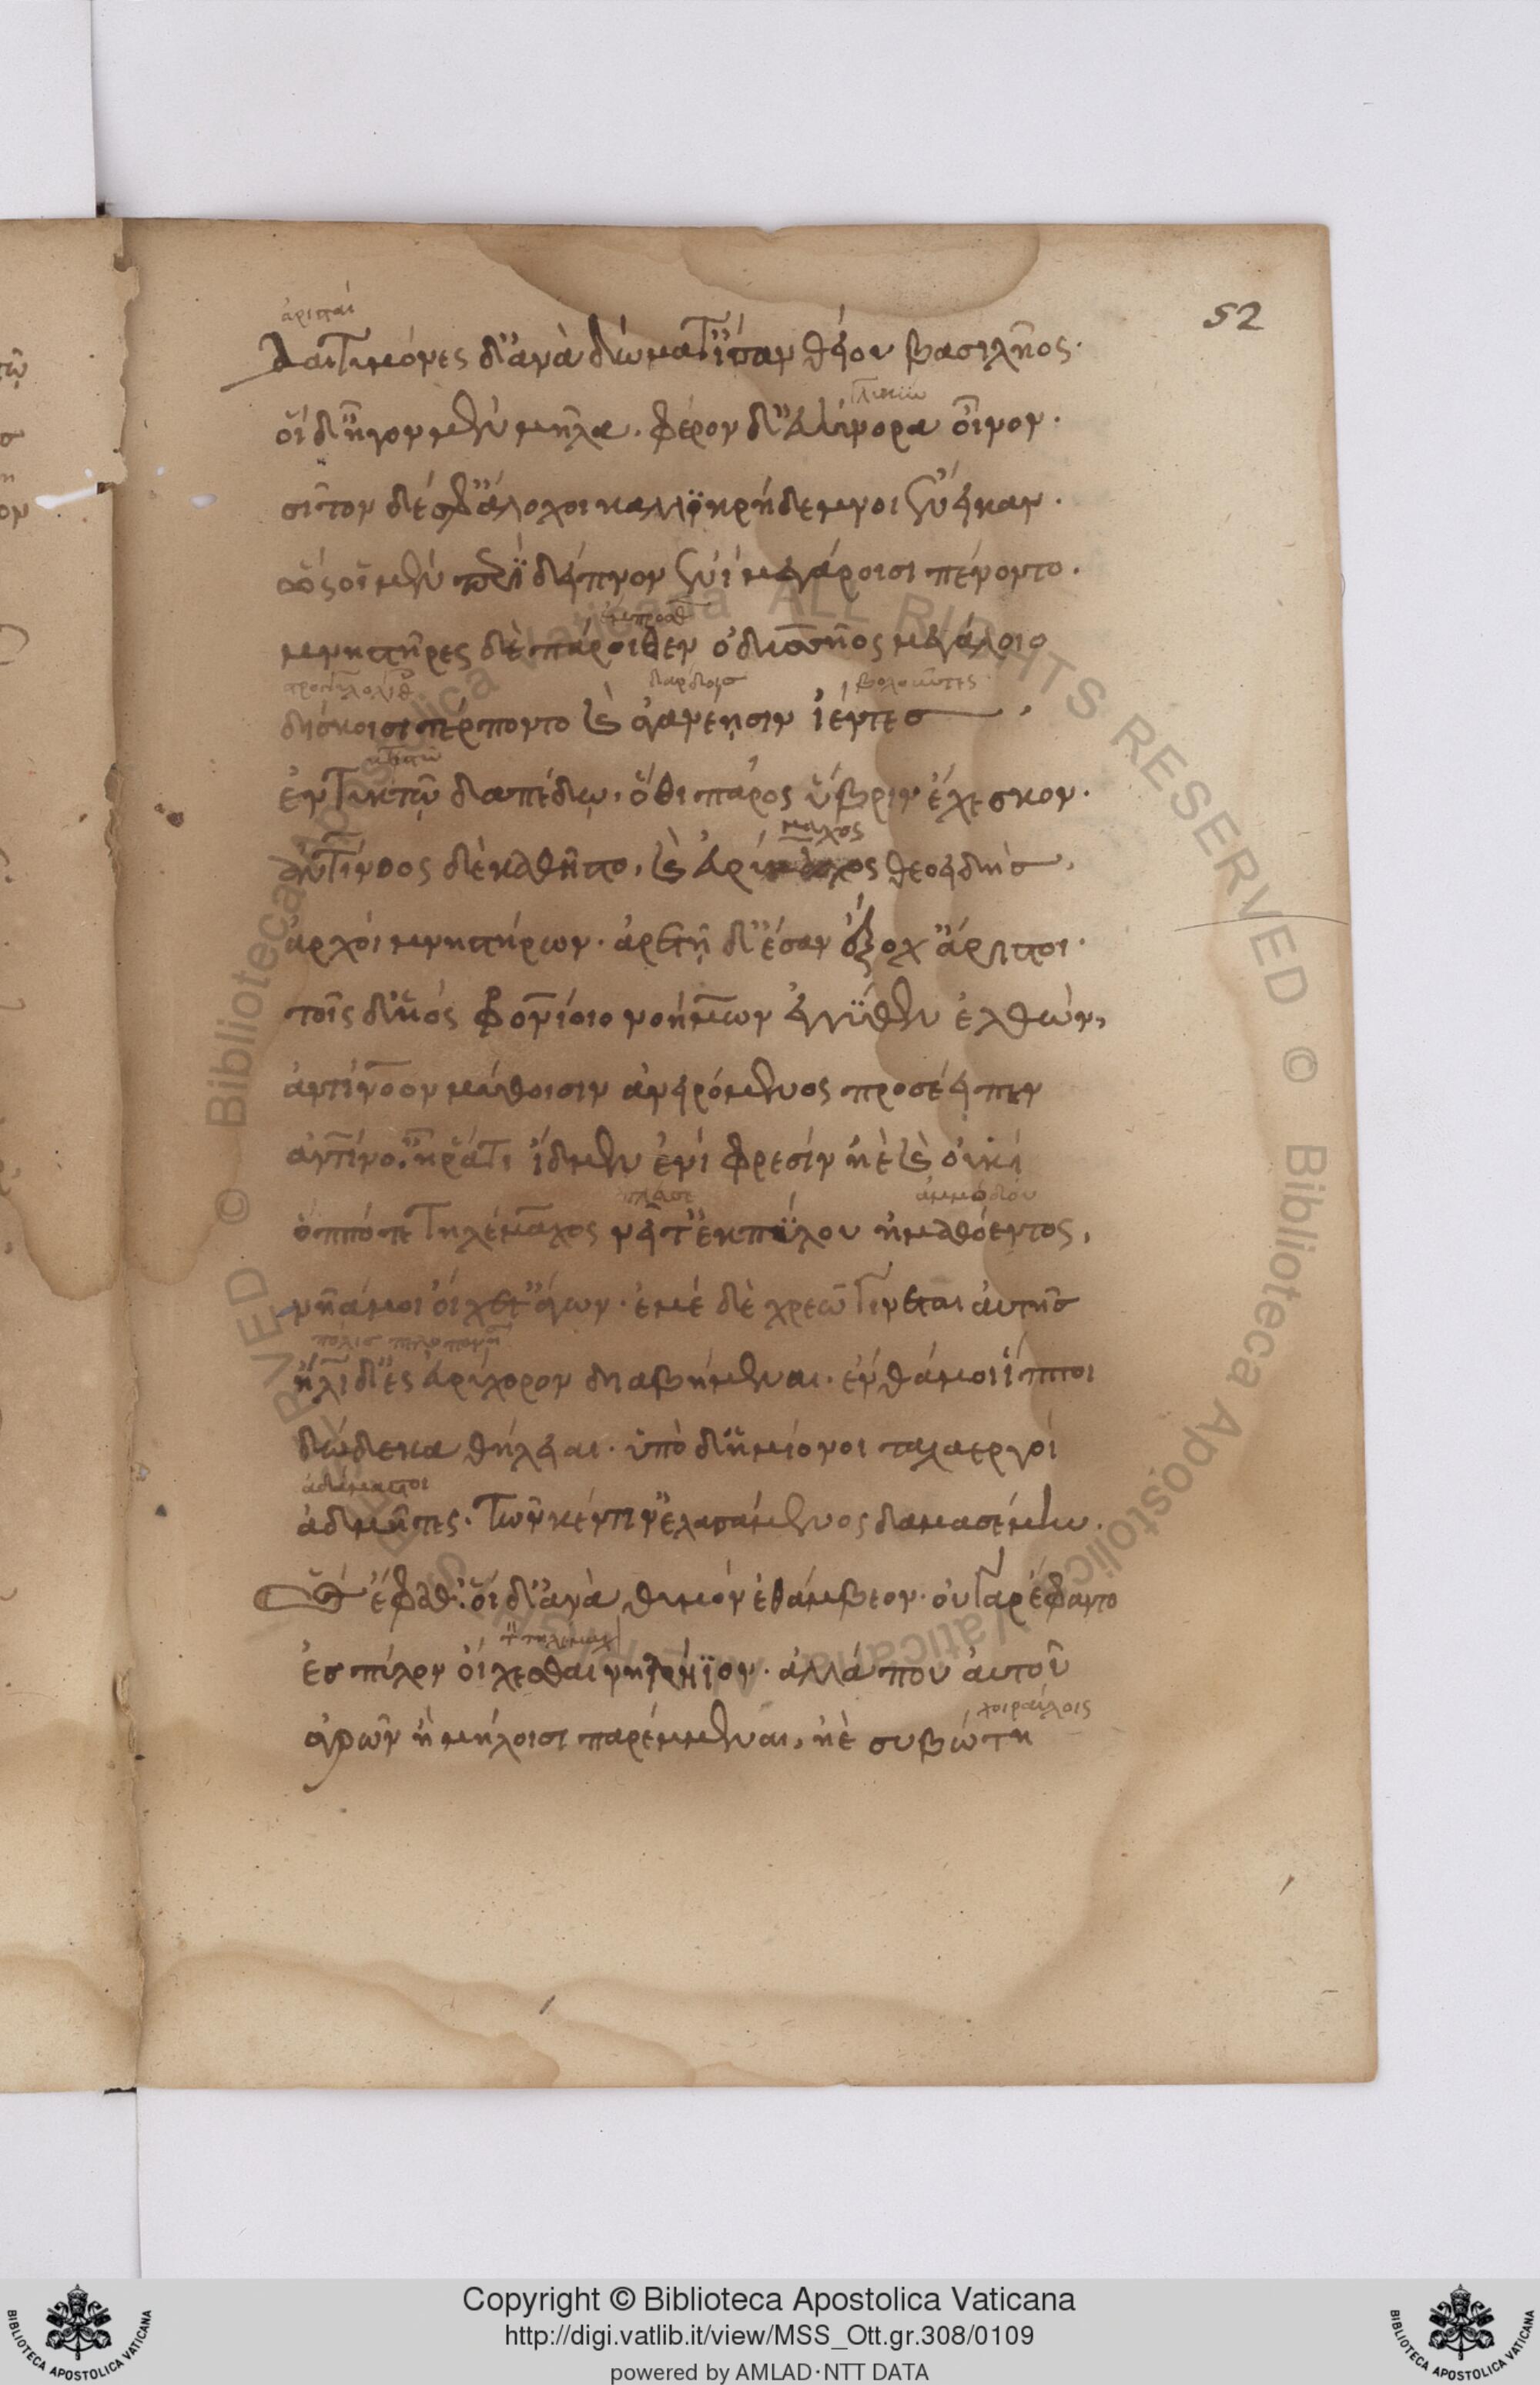 52
Δαιτυμόνες δ' ἀνὰ δώματ' ἴσαν θείου βασιλῆος.
οἱ δ' ἦγον μὲν μῆλα. φέρον δ' εὐήνορα οἶνον.
σῖτον δέ σφ' ἄλοχοι καλλικρήδεμνοι ἔνεικαν.
ὣς οἱ μὲν περὶ δεῖπνον ἐνὶ μεγάροισι πένοντο.
ἔμπροσθ
μνηστῆρες δὲ πάροιθεν ὀδυσσῆος μεγάλοιο
δίσκοισι τέρποντο καὶ αἰγανέῃσιν ἱέντες,
ἐν τυκτῷ δαπέδῳ, ὅθι πάρος ὕβριν ἔχεσκον.
μαχος
ἀντίνοος δὲ καθῆστο, καὶ εὐρύμαχος θεοειδής,
ἀρχοὶ μνηστήρων. ἀρετῇ δ' ἔσαν ἔξοχ' ἄριστοι.
τοῖς δ' υἱὸς φρονίοιο νοήμων ἐγγύθεν ἐλθών,
ἀντίνοον μύθοισιν ἀνειρόμενος προσέειπεν
ἀντίνο' ἦ ῥά τι ἴδμεν ἐνὶ φρεσὶν ἠὲ καὶ οὐκί
ὁππότε τηλέμαχος νεῖτ' ἐκ πύλου ἠμαθόεντος,
νῆά μοι οἴχετ' ἄγων. ἐμὲ δὲ χρεὼ γίνεται αὐτῆς
ἤλιδ' ἐς εὐρύχορον διαβήμεναι. ἔνθά μοι ἵπποι
δώδεκα θήλειαι. ὑπὸ δ' ἡμίονοι ταλαεργοί
ἀδάμαστοι
ἀδμῆτες. τῶν κέν τιν' ἐλασάμενος δαμασαίμην.
Ὣς ἔφαθ'. οἱ δ' ἀνὰ θυμὸν ἐθάμβεον. οὐ γὰρ ἔφαντο
ἐς πύλον οἴχεσθαι νηλήϊον. ἀλλά που αὐτοῦ
ἀγρῶν ἢ μήλοισι παρέμμεναι, ἠὲ συβώτῃ
© Biblioteca Apostolica Vaticana ALL RIGHTS RESERVED © Biblioteca Apostolica Vaticana ALL RIGHTS RESERVED
Copyright © Biblioteca Apostolica Vaticana
http://digi.vatlib.it/view/MSS_Ott.gr.308/0109
powered by AMLAD·NTT DATA
BIBLIOTECA APOSTOLICA VATICANA
BIBLIOTECA APOSTOLICA VATICANA